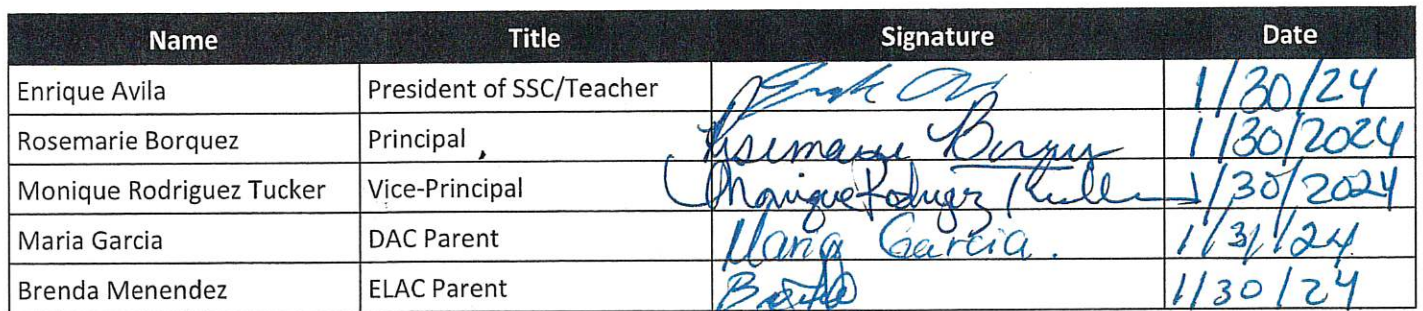 Name Title Signature Date
Enrique Avila President of SSC/Teacher 1/30/24
Rosemarie Borquez Principal Rosemarie Borquez 1/30/2024
Monique Rodriguez Tucker Vice-Principal Monique Rodriguez 1/30/2024
Maria Garcia DAC Parent Maria Garcia. 1/31/24
Brenda Menendez ELAC Parent 1/30/24